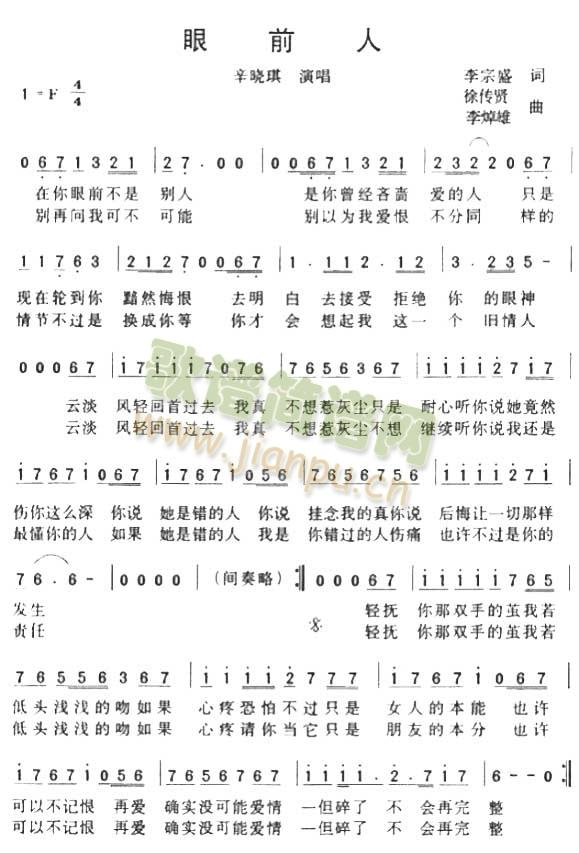 眼 前 人
辛晓琪 演唱
李宗盛 词
徐传贤
李焯雄 曲
1=F 4/4
0 6 7 1 3 2 1 | 2 7 · 0 0 | 0 0 6 7 1 3 2 1 | 2 3 2 2 0 6 7 |
在你眼前不是 别人 是你曾经吝啬 爱的人 只是
别再问我可不 可能 别以为我爱恨 不分同 样的
1 1 7 6 3 | 2 1 2 7 0 0 6 7 | 1 · 1 1 2 · 1 2 | 3 · 2 3 5 - |
现在轮到你 黯然悔恨 去明 白 去接受 拒绝 你 的眼神
情节不过是 换成你等 你才 会 想起我 这一 个 旧情人
0 0 0 6 7 | 1 7 1 1 1 7 0 7 6 | 7 6 5 6 3 6 7 | 1 1 1 1 2 7 1 7
云淡 风轻回首过去 我真 不想惹灰尘只是 耐心听你说她竟然
云淡 风轻回首过去 我真 不想惹灰尘不想 继续听你说我还是
1 7 6 7 1 0 6 7 | 1 7 6 7 1 0 5 6 | 7 6 5 6 7 5 6 | 1 1 1 1 2 7 1
伤你这么深 你说 她是错的人 你说 挂念我的真你说 后悔让一切那样
最懂你的人 如果 她是错的人 我是 你错过的人伤痛 也许不过是你的
7 6 · 6 - | 0 0 0 0 | (间奏略) :‖ 0 0 0 6 7 | 1 1 1 1 1 7 6 5
发生 轻抚 你那双手的茧我若
责任 𝄋 轻抚 你那双手的茧我若
7 6 5 5 6 3 6 7 | 1 1 1 1 2 7 7 7 | 1 7 6 7 1 0 6 7
低头浅浅的吻如果 心疼恐怕不过只是 女人的本能 也许
低头浅浅的吻如果 心疼请你当它只是 朋友的本分 也许
1 7 6 7 1 0 5 6 | 7 6 5 6 7 5 6 | 1 1 1 1 · 2 · 7 1 7 | 6 - - 0 :‖
可以不记恨 再爱 确实没可能爱情 一但碎了 不 会再完 整
可以不记恨 再爱 确实没可能爱情 一但碎了 不 会再完 整
歌谱简谱网
www.jianpu.cn